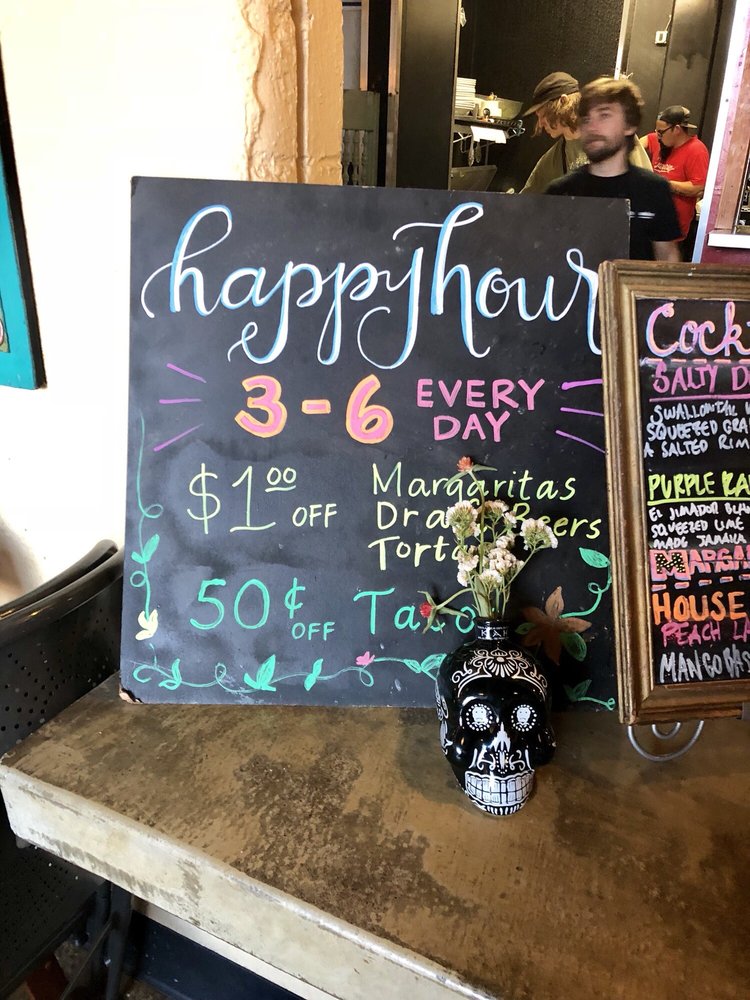 happy hour
3-6 EVERY DAY
$1.00 OFF Margaritas
Draft Beers
Torta
50¢ OFF Taco
Cock
SALTY D
SQUEEZED GRA
A SALTED RIM
PURPLE RA
EL JIMADOR BLAN
SQUEEZED LIME
MADE JAMAICA
MARGA
HOUSE
PEACH LA
MANGO BAS